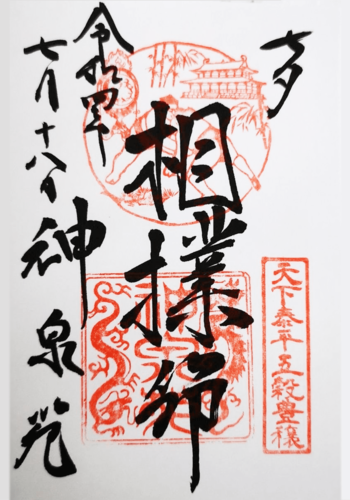 七夕
天下泰平五穀豊穣
相撲節
令和四年
七月十八日
神泉苑